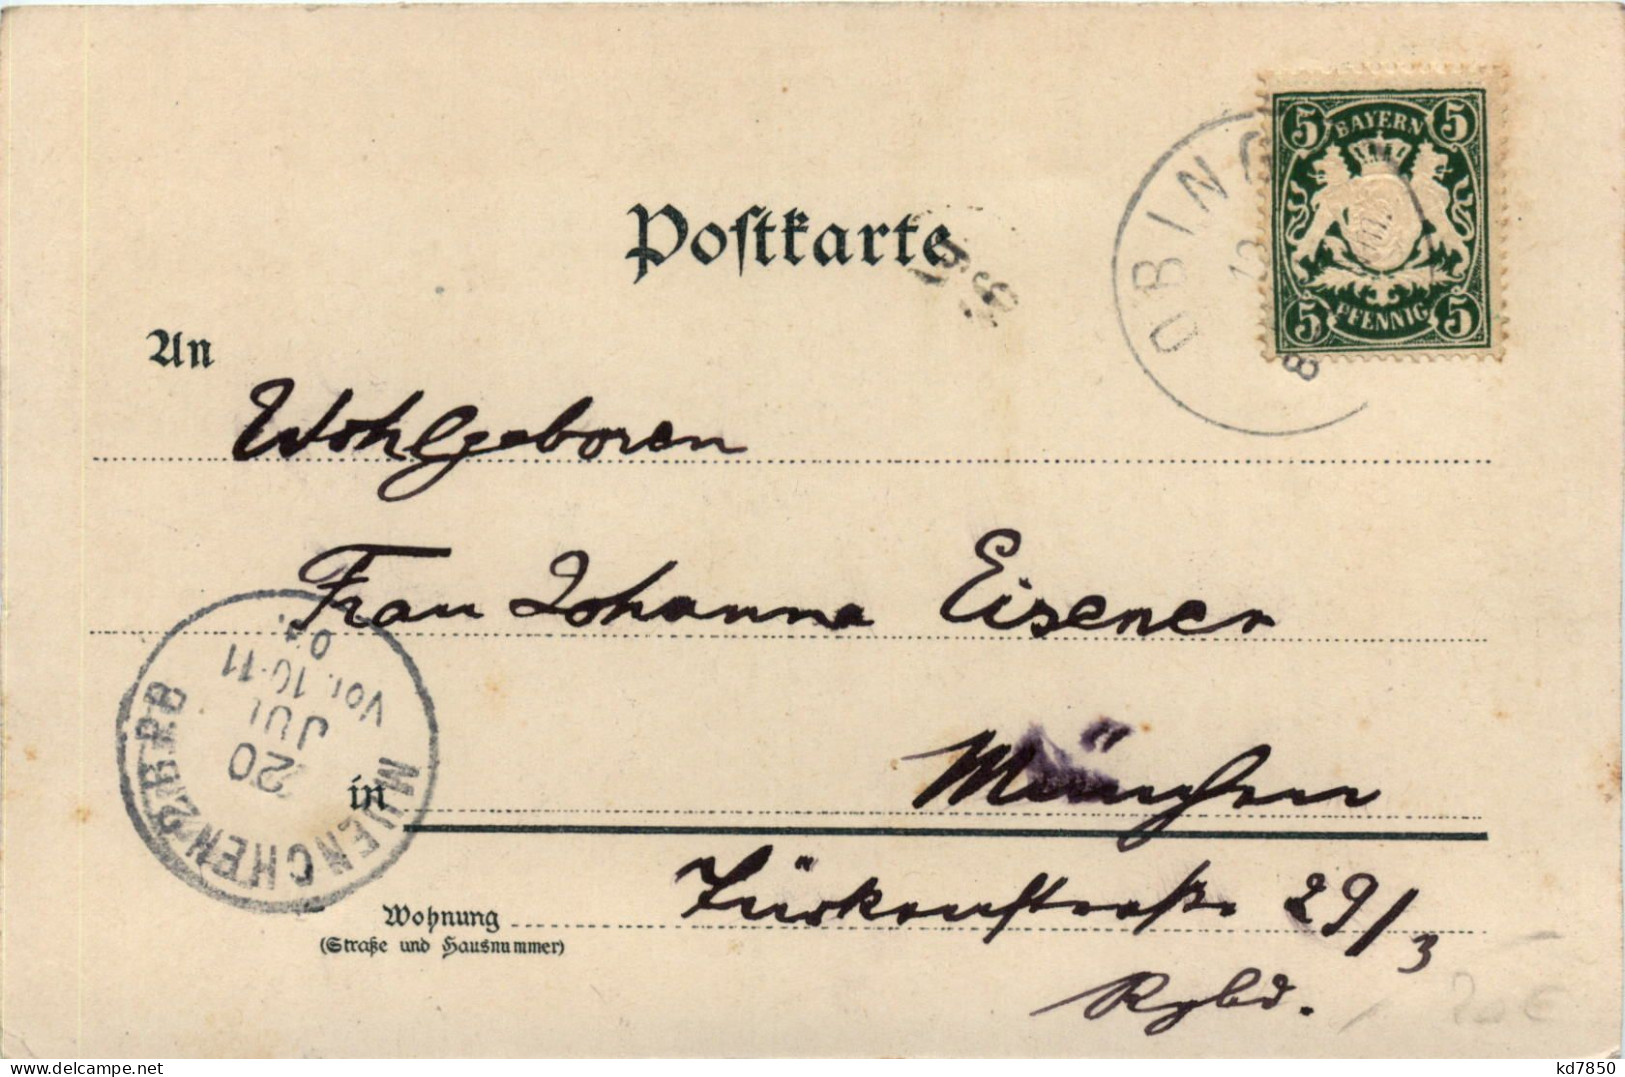 Postkarte
OBING
BAYERN
5 5
PFENNIG
5 5
An
Wohlgeboren
Frau Johanna Eisener
MUENCHEN 2.B.P.B
20
JUL
Vor. 10-11
in München
Wohnung Türkenstraße 29/3
(Straße und Hausnummer)
Rgbd.
20 €
kd7850